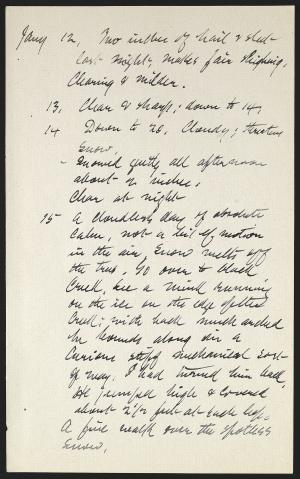 Jany 12, Two inches of hail & sleet
last night, makes fair sleighing,
Clearing & milder.
13, Clear & sharp; down to 14,
14 Down to 20, Cloudy; threatens
Snow,
- Snowed gently all afternoon
about 2 inches,
Clear at night
15- A cloudless day of absolute
Calm, not a bit of motion
in the air, Snow melts off
the trees. Go over to black
Creek, see a mink running
on the ice on the edge of the
Creek; with back much arched
he bounds along in a
Curious stiff mechanical sort
of way. I had turned him back,
He jumped high & covered
about 2½ feet at each hop.
A fine walk over the spotless
Snow,